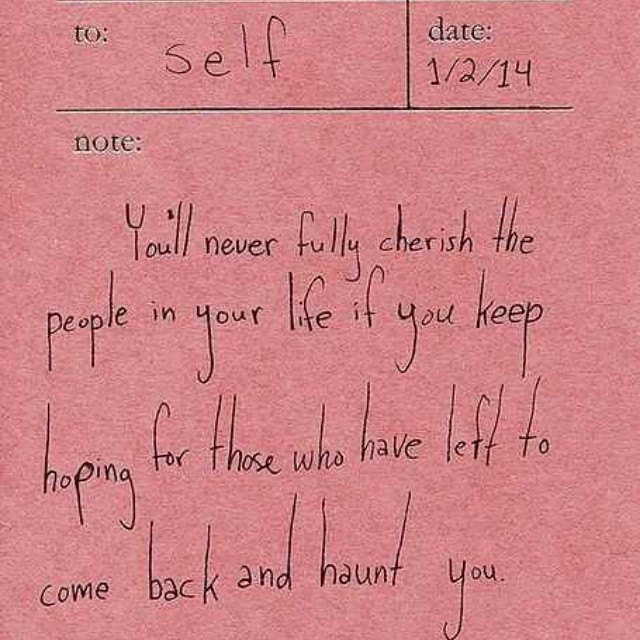 to:
self
date:
1/2/14
note:
You'll never fully cherish the
people in your life if you keep
hoping for those who have left to
come back and haunt you.